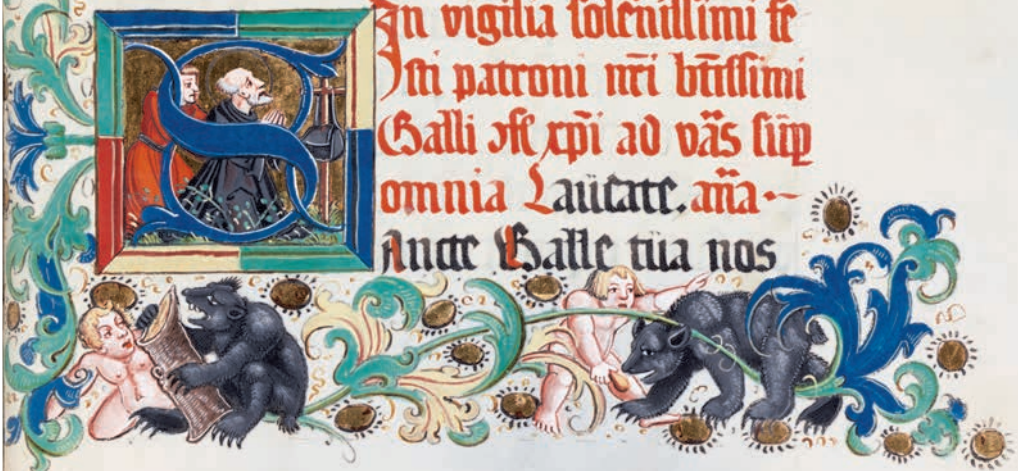 In vigilia ſoleniſſimi fe
ſti patroni nr̄i bt̄iſſimi
Galli ꝯfeſ xp̄i ad vās ſuꝑ
omnia Laudate. an̄a
SAncte Galle tua nos